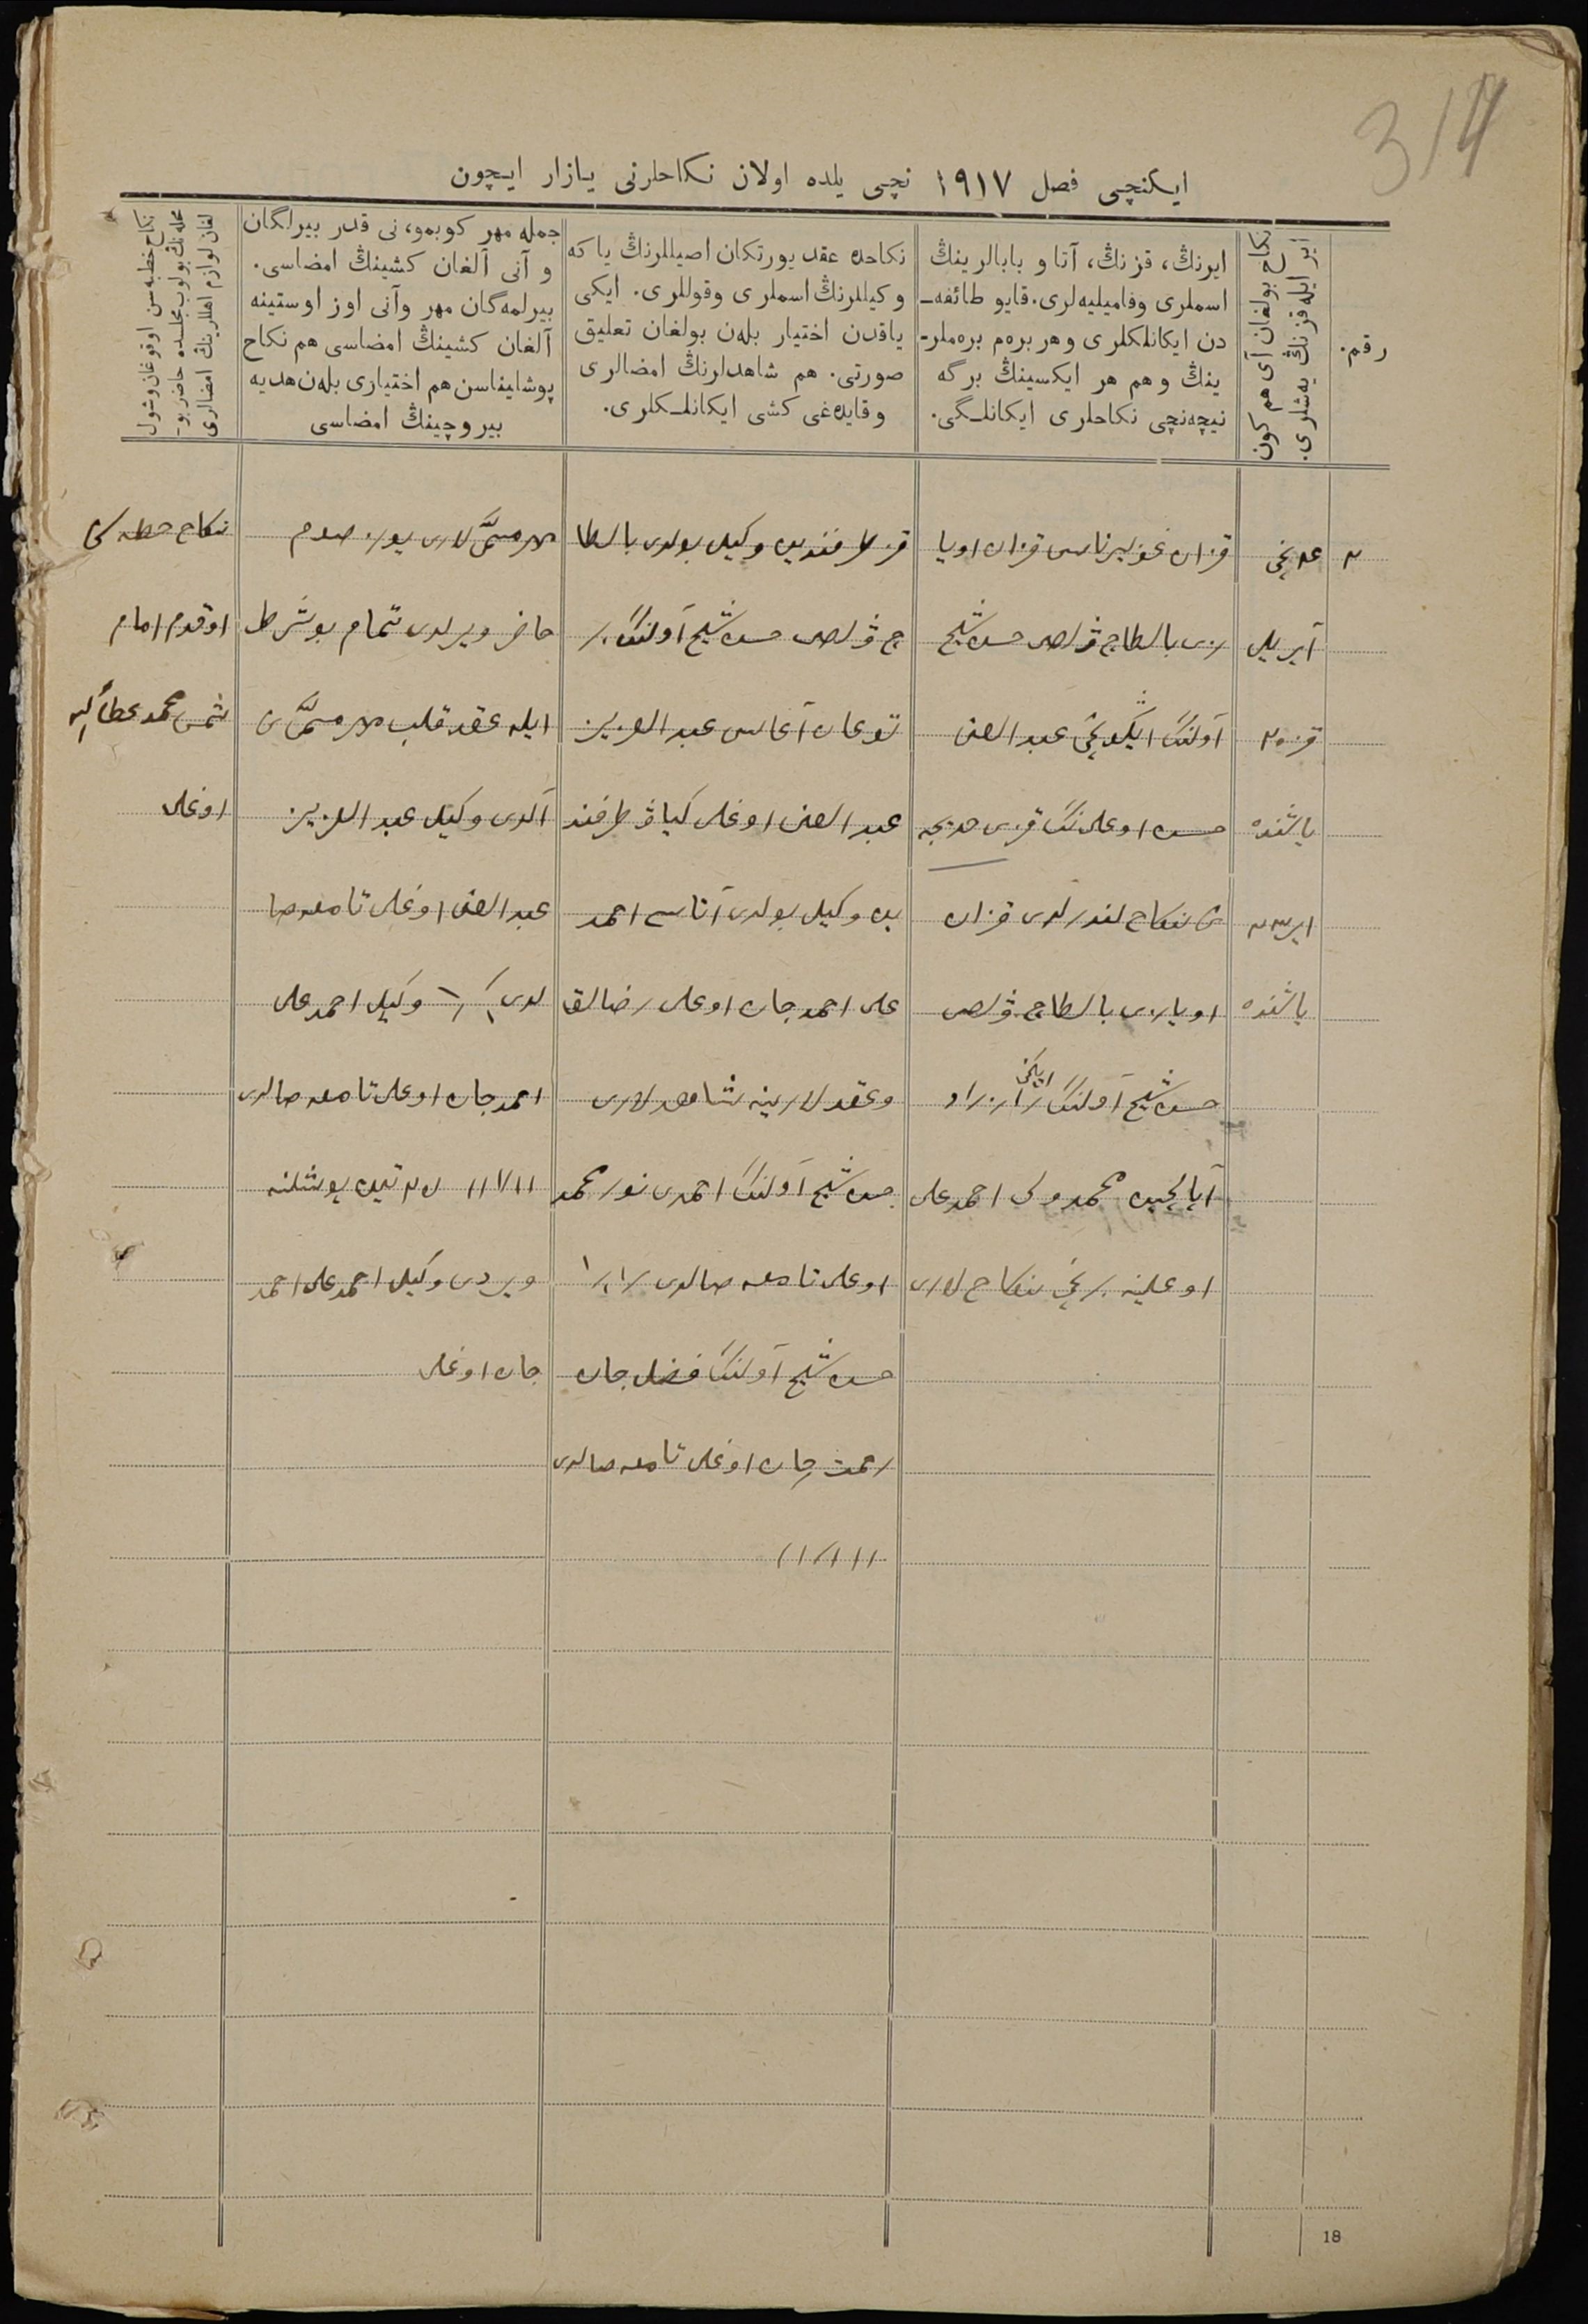 314
ایکنچی فصل ۱۹۱۷ نچی یلده اولان نکاحلرنی یازار ایچون
رقم.
نکاح بولغان آی هم کون
ایر ایله قزنڭ یەشلری.
ایرنڭ، قزنڭ، آتا و بابالرینڭ
اسملری وفامیلیەلری. قایو طائفه‌ـ
دن ایکانلکلری وهر برەم برەملرـ
ینڭ و هم هر ایکسینڭ برگه
نیچەنچی نکاحلری ایکانلـگی.
نکاحده عقد یورتکان اصیللرنڭ یا که
وکیللرنڭ اسملری وقوللری. ایکی
یاقدن اختیار بلەن بولغان تعلیق
صورتی. هم شاهدلرنڭ امضالری
وقایدەغی کشی ایکانلـکلری.
جمله مهر کوبمو، نی قدر بیرلگان
و آنی آلغان کشینڭ امضاسی.
بیرلمەگان مهر وآنی اوز اوستینه
آلغان کشینڭ امضاسی هم نکاح
پوشایناسن هم اختیاری بلەن هدیه
بیروچینڭ امضاسی
نکاح خطبەسن اوقوغان وشول
محلەنڭ بولوب مجلسده حاضر بوـ
لغان لوازم اهللرینڭ امضالری
۲
نچی
آپریل
قز ۲۰
یاشنده
ایر ۲۳
یاشنده
قزان غوبیرناسی قزان اویا
زی بالطاچ ولصی حسن شیخ
آولنڭ عبد الغنی
حسن اوغلی ننڭ قزی خدیجه
نی نکاح لندرلدی قزان
اویازی بالطاچ ولصی
حسن شیخ آولنڭ
محمد ولی احمد علی
اوغلینه برنچی نکاح لاری
قز طرفندین وکیل بولدی بالطا
چ ولصی حسن شیخ آولنڭ
توغان آغاسی عبد العزیز
عبد الغنی اوغلی کیاو طرفند
ین وکیل بولدی آتاسی احمد
علی احمد جان اوغلی رضالق
وعقد لارینه شاهد لاری
حسن شیخ آولنڭ احمدی نور محمد
اوغلی تامغه صالدی
حسن شیخ آولنڭ فضل جان
رحمت جان اوغلی تامغه صالدی
مهر مسمی لاری یوز صوم
حاضر ویرلدی تمام بو شرط
ایله عقد قلب مهر مسمی نی
آلدی وکیل عبد العزیز
عبد الغنی اوغلی تامغه صا
لدی وکیل احمد علی
احمد جان اوغلی تامغه صالدی
تین پوشلنه
ویردی وکیل احمد علی احمد
جان اوغلی
نکاح خطبه نی
اوقدم امام
شمس محمد عطاء الله
اوغلی
18